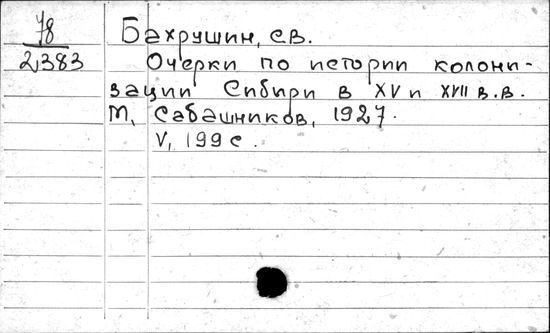 78
2383
Бахрушин, С.В.
Очерки по истории колони-
зации Сибири в XV и XVII в.в.
М, Сабашников, 1927.
V, 199 с.